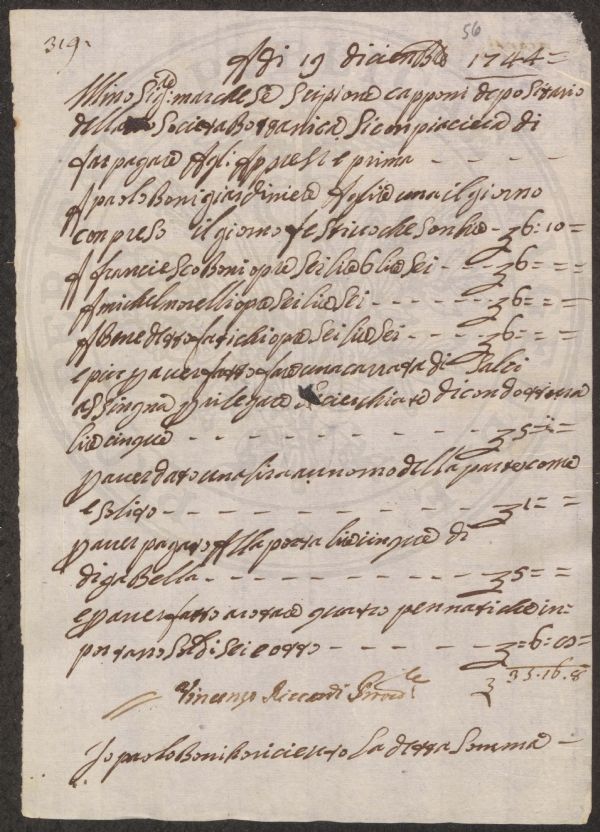 56
319.
A di 19 dicembre 1744 =
Illmo Sigre: marchese Scipione capponi depositario
della Societa Bottanica, Si conpiacierà di
far pagare A gli Appresi e prima - - - -
A paolo Boni giardiniere A lire una il giorno
conpreso il giorno festivo che sonho - 6 = 10 =
A franciesco Boni opre Sei lire 6 lire Sei - - 6 = = =
A michel norelli opre Sei lire Sei - - - - - 6 = = =
A Benedetto fatichi opre Sei lire Sei - - - 6 = = =
e piu p aver fatto fare una carrata di Salci
assingnia p rilegare cierchiate di condotta
lire cinque - - - - - - - - - - 5 = =
p aver dato una lira a un nomo della parte come
e Solito - - - - - - - - - - 1 = =
p aver pagato Alla porta lire cinque di
di gaBella - - - - - - - - - 5 = =
e p aver fatto arotare quatro pennati che in=
portano Soldi Sei e otto - - - - - = 6 = 8 =
35.16.8
Vincenzo Riccardi Provre
Io paolo Boni ho ricieuto La detta Somma -